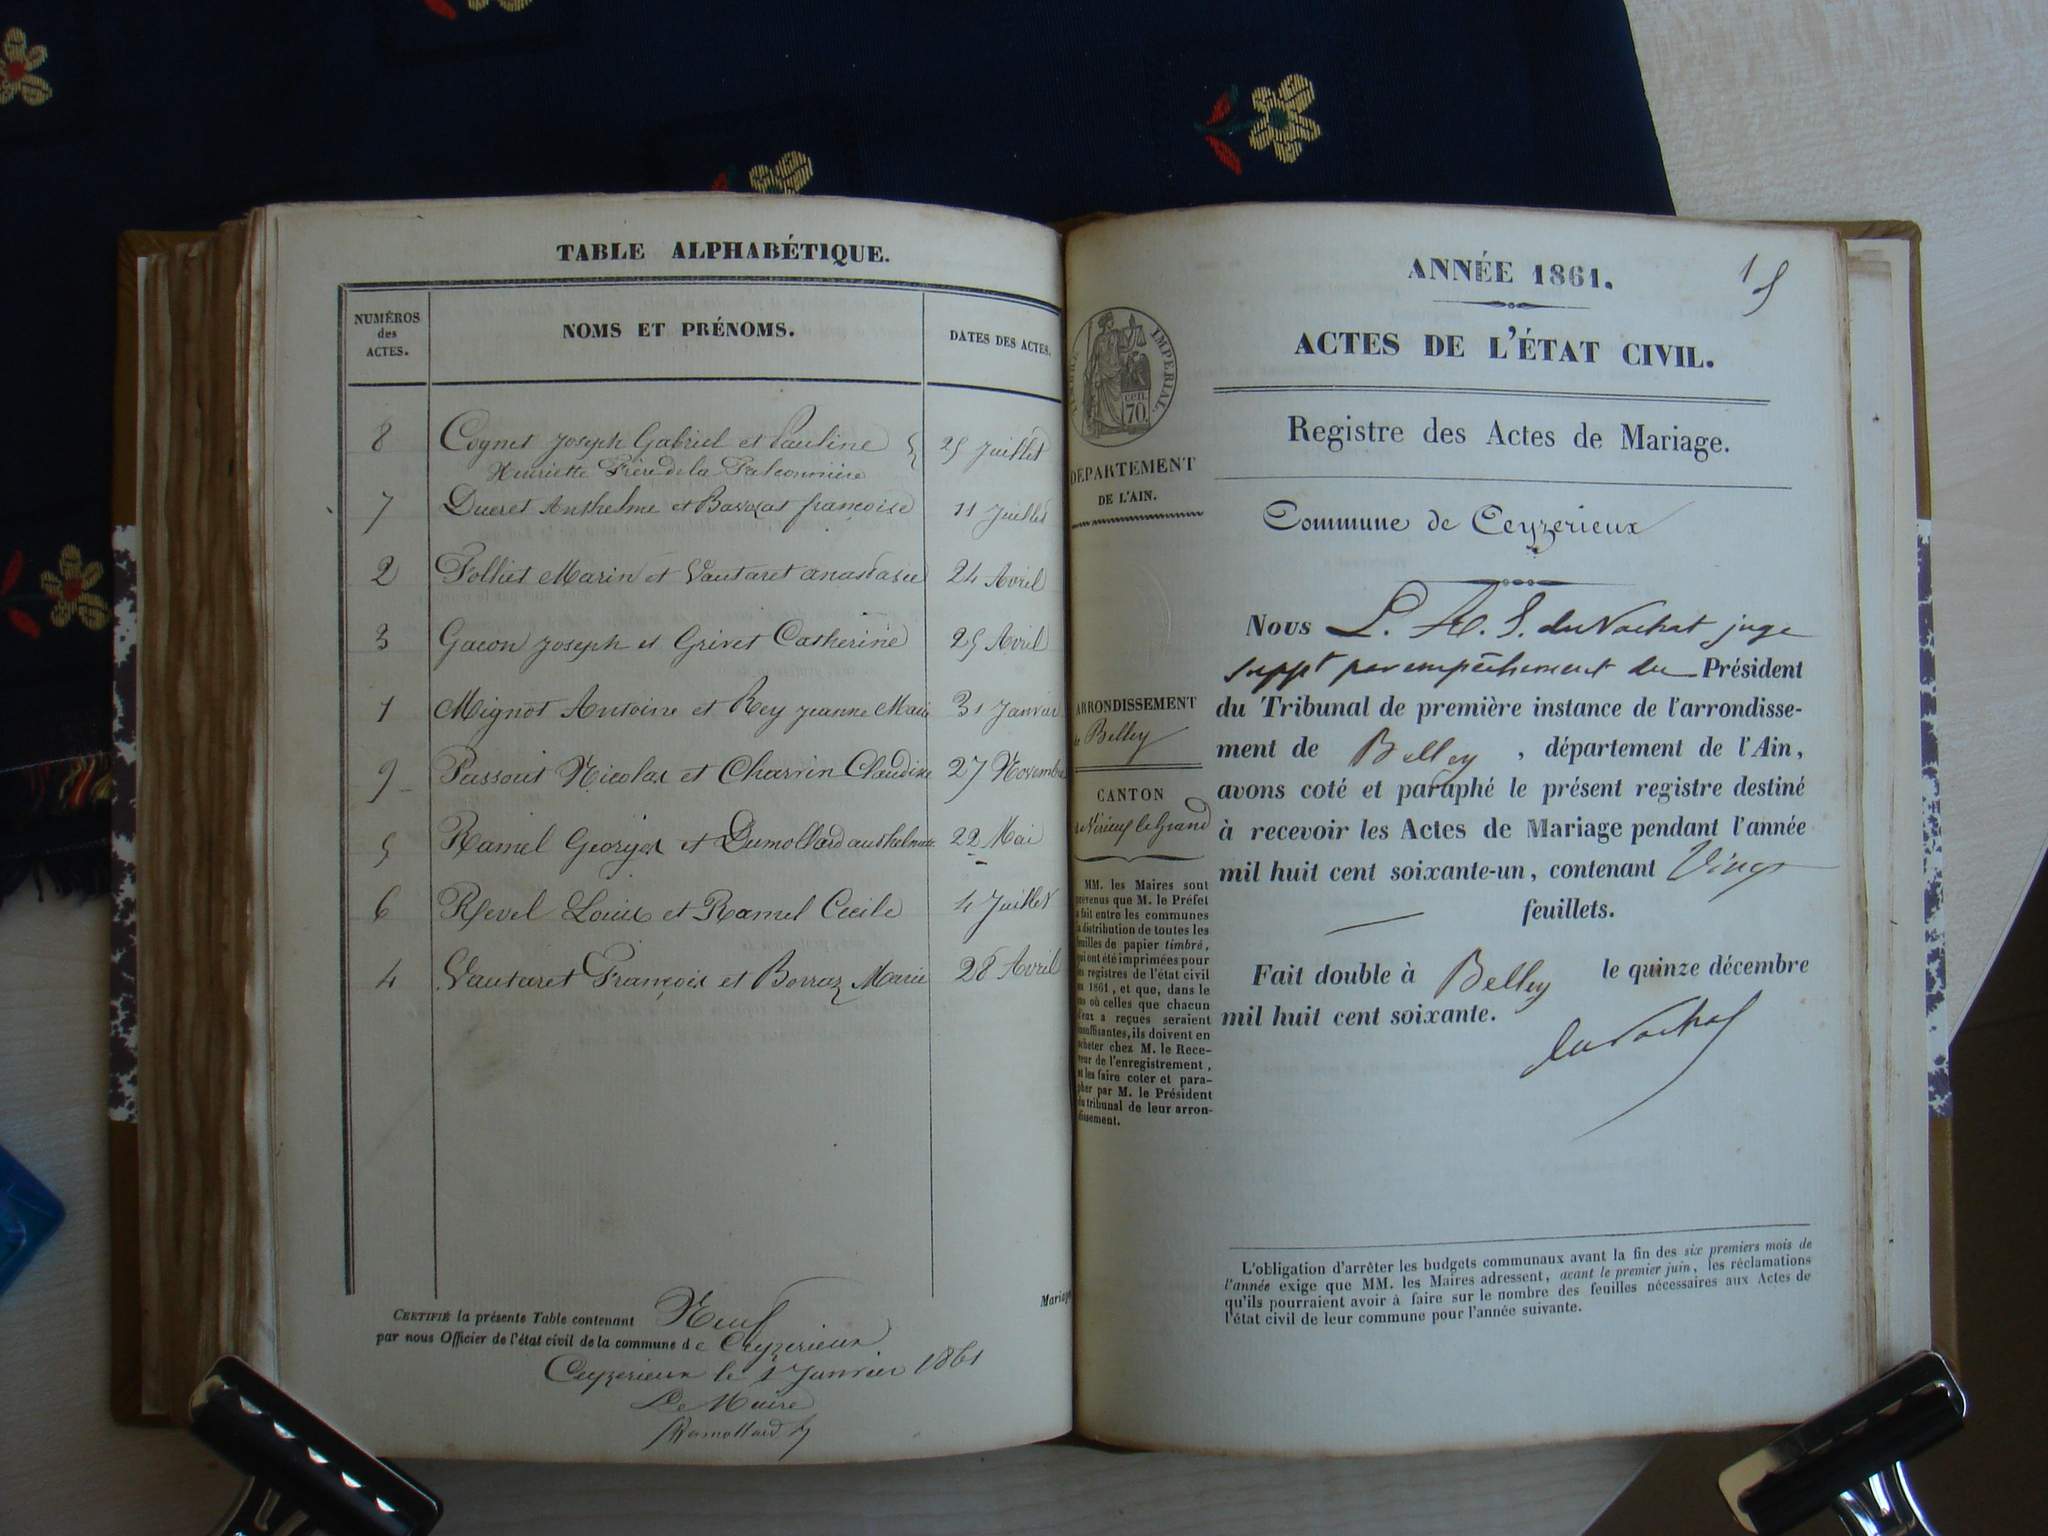 TABLE ALPHABÉTIQUE.
NUMÉROS
des
ACTES.
NOMS ET PRÉNOMS.
DATES DES ACTES.
8 Cognet Joseph Gabriel et Pauline 25 Juillet
Henriette Frère de la Falconnière
7 Ducret Anthelme et françoise 11 Juillet
2 Folliet Marin et Vautaret anastasie 24 Avril
3 Gacon Joseph et Grivet Catherine 25 Avril
1 Mignot Antoine et Rey Jeanne Marie 31 Janvier
9 Passout Nicolas et Charvin Claudine 27 Novembre
5 Ramel Georges et Dumollard 22 Mai
6 Revel Louis et Ramel Cecile 4 Juillet
4 Vautaret François et Borraz Marie 28 Avril
CERTIFIÉ la présente Table contenant Neuf
par nous Officier de l'état civil de la commune de Ceyzerieux
Ceyzerieux le 1 Janvier 1861
Le Maire
Mariage
ANNÉE 1861.
1
ACTES DE L'ÉTAT CIVIL.
TIMBRE IMPERIAL.
cen.
70
Registre des Actes de Mariage.
DÉPARTEMENT
DE L'AIN.
Commune de Ceyzerieux
Nous L. A. S. du Vachat juge
suppt par empêchement du Président
du Tribunal de première instance de l'arrondisse-
ment de Belley, département de l'Ain,
avons coté et paraphé le présent registre destiné
à recevoir les Actes de Mariage pendant l'année
mil huit cent soixante-un, contenant Vingt
feuillets.
Fait double à Belley le quinze décembre
mil huit cent soixante.
du Vachat
ARRONDISSEMENT
de Belley
CANTON
de Virieux le Grand
MM. les Maires sont
prévenus que M. le Préfet
a fait entre les communes
la distribution de toutes les
feuilles de papier timbré,
qui ont été imprimées pour
les registres de l'état civil
en 1861, et que, dans le
cas où celles que chacun
d'eux a reçues seraient
insuffisantes, ils doivent en
acheter chez M. le Rece-
veur de l'enregistrement,
et les faire coter et para-
pher par M. le Président
du tribunal de leur arron-
dissement.
L'obligation d'arrêter les budgets communaux avant la fin des six premiers mois de
l'année exige que MM. les Maires adressent, avant le premier juin, les réclamations
qu'ils pourraient avoir à faire sur le nombre des feuilles nécessaires aux Actes de
l'état civil de leur commune pour l'année suivante.